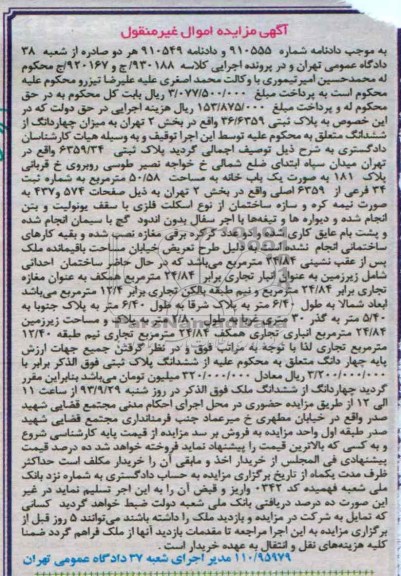 آگهی مزایده اموال غیرمنقول
به موجب دادنامه شماره ۹۱۰۵۵۵ و دادنامه ۹۱۰۵۴۹ هر دو صادره از شعبه ۳۸
دادگاه عمومی تهران و در پرونده اجرایی کلاسه ۹۳۰۱۸۸/ج و ۹۲۰۱۶۷/ج محکوم
له محمدحسین امیرتیموری با وکالت محمد اصغری علیه علیرضا تیزرو محکوم علیه
محکوم است به پرداخت مبلغ ۳/۰۷۷/۵۰۰/۰۰۰ ریال بابت کل محکوم به در حق
محکوم له و پرداخت مبلغ ۱۵۳/۸۷۵/۰۰۰ ریال هزینه اجرایی در حق دولت که در
این خصوص به پلاک ثبتی ۳۶/۶۳۵۹ واقع در بخش ۲ تهران به میزان چهاردانگ از
ششدانگ متعلق به محکوم علیه توسط این اجرا توقیف و به وسیله هیات کارشناسان
دادگستری به شرح ذیل توصیف اجمالی گردید پلاک ثبتی ۶۳۵۹/۳۴ واقع در
تهران میدان سپاه ابتدای ضلع شمالی خ خواجه نصیر طوسی روبروی خ قربانی
پلاک ۱۸۱ به صورت یک باب خانه به مساحت ۵۰/۵۸ مترمربع به شماره ثبت
۳۴ فرعی از ۶۳۵۹ اصلی واقع در بخش ۲ تهران به ذیل صفحات ۵۷۴ و ۴۳۷ به
صورت نیمه کره و سازه ساختمان از نوع اسکلت فلزی با سقف یونولیت و بتن
انجام شده و دیواره ها و تیغه‌ها با اجر سفال بدون اندود گچ با سیمان انجام شده
و پشت بام عایق کاری کرکره برقی مغازه نصب شده و بقیه کارهای
ساختمانی انجام نشده دلیل طرح تعریض خیابان مساحت باقیمانده ملک
پس از عقب نشینی ۲۴/۸۴ مترمربع می‌باشد که در حال حاضر ساختمان احداثی
شامل زیرزمین به عنوان انبار تجاری برابر ۲۴/۸۴ مترمربع همکف به عنوان مغازه
تجاری برابر ۲۴/۸۴ مترمربع و نیم طبقه بالکن تجاری برابر ۱۲/۴ مترمربع می‌باشد
ابعاد شمالا به طول ۶/۴۰ متر به پلاک شرقا به طول ۶/۴۰ متر به پلاک جنوبا به
۵/۴۰ متر به گذر ۳۰ متری غربا به طول ۲/۸۰ متر به پلاک و مساحت زیرزمین
۲۴/۸۴ مترمربع انباری تجاری همکف ۲۴/۸۴ مترمربع تجاری نیم طبقه ۱۲/۴۰
مترمربع تجاری لذا با توجه به مراتب فوق و در نظر گرفتن جمیع جهات ارزش
پایه چهار دانگ متعلق به محکوم علیه از ششدانگ پلاک ثبتی فوق الذکر برابر با
۳/۲۰۰/۰۰۰/۰۰۰ ریال معادل ۳۲۰/۰۰۰/۰۰۰ میلیون تومان می‌باشد بنابراین مقرر
گردید چهاردانگ از ششدانگ ملک فوق الذکر در روز شنبه ۹۳/۹/۲۹ از ساعت ۱۱
الی ۱۲ از طریق مزایده حضوری در محل اجرای احکام مدنی مجتمع قضایی شهید
صدر واقع در خیابان مطهری خ میرعماد جنب فرمانداری مجتمع قضایی شهید
صدر طبقه اول واحد مزایده به فروش بر سد مزایده از قیمت پایه کارشناسی شروع
و به کسی که بالاترین قیمت را پیشنهاد نماید فروخته خواهد شد ده درصد قیمت
پیشنهادی فی المجلس از خریدار اخذ و مابقی آن را خریدار مکلف است حداکثر
ظرف مدت یکماه از تاریخ برگزاری مزایده به حساب دادگستری به شماره نزد بانک
ملی شعبه فهمیده کد ۰۳۴۲ واریز و قبض آن را به این اجر تسلیم نماید در غیر
این صورت ده درصد دریافتی بانک ملی شعبه دولت ضبط خواهد گردید کسانی
که تمایل به شرکت در مزایده و بازدید ملک را داشته باشند می‌توانند ۵ روز قبل از
برگزاری مزایده به این اجرا مراجعه تا مقدمات بازدید آنها از ملک فراهم گردد ضمنا
کلیه هزینه‌های نقل و انتقال به عهده خریدار است.
۱۱۰/۹۵۹۷۹ مدیر اجرای شعبه ۳۷ دادگاه عمومی تهران